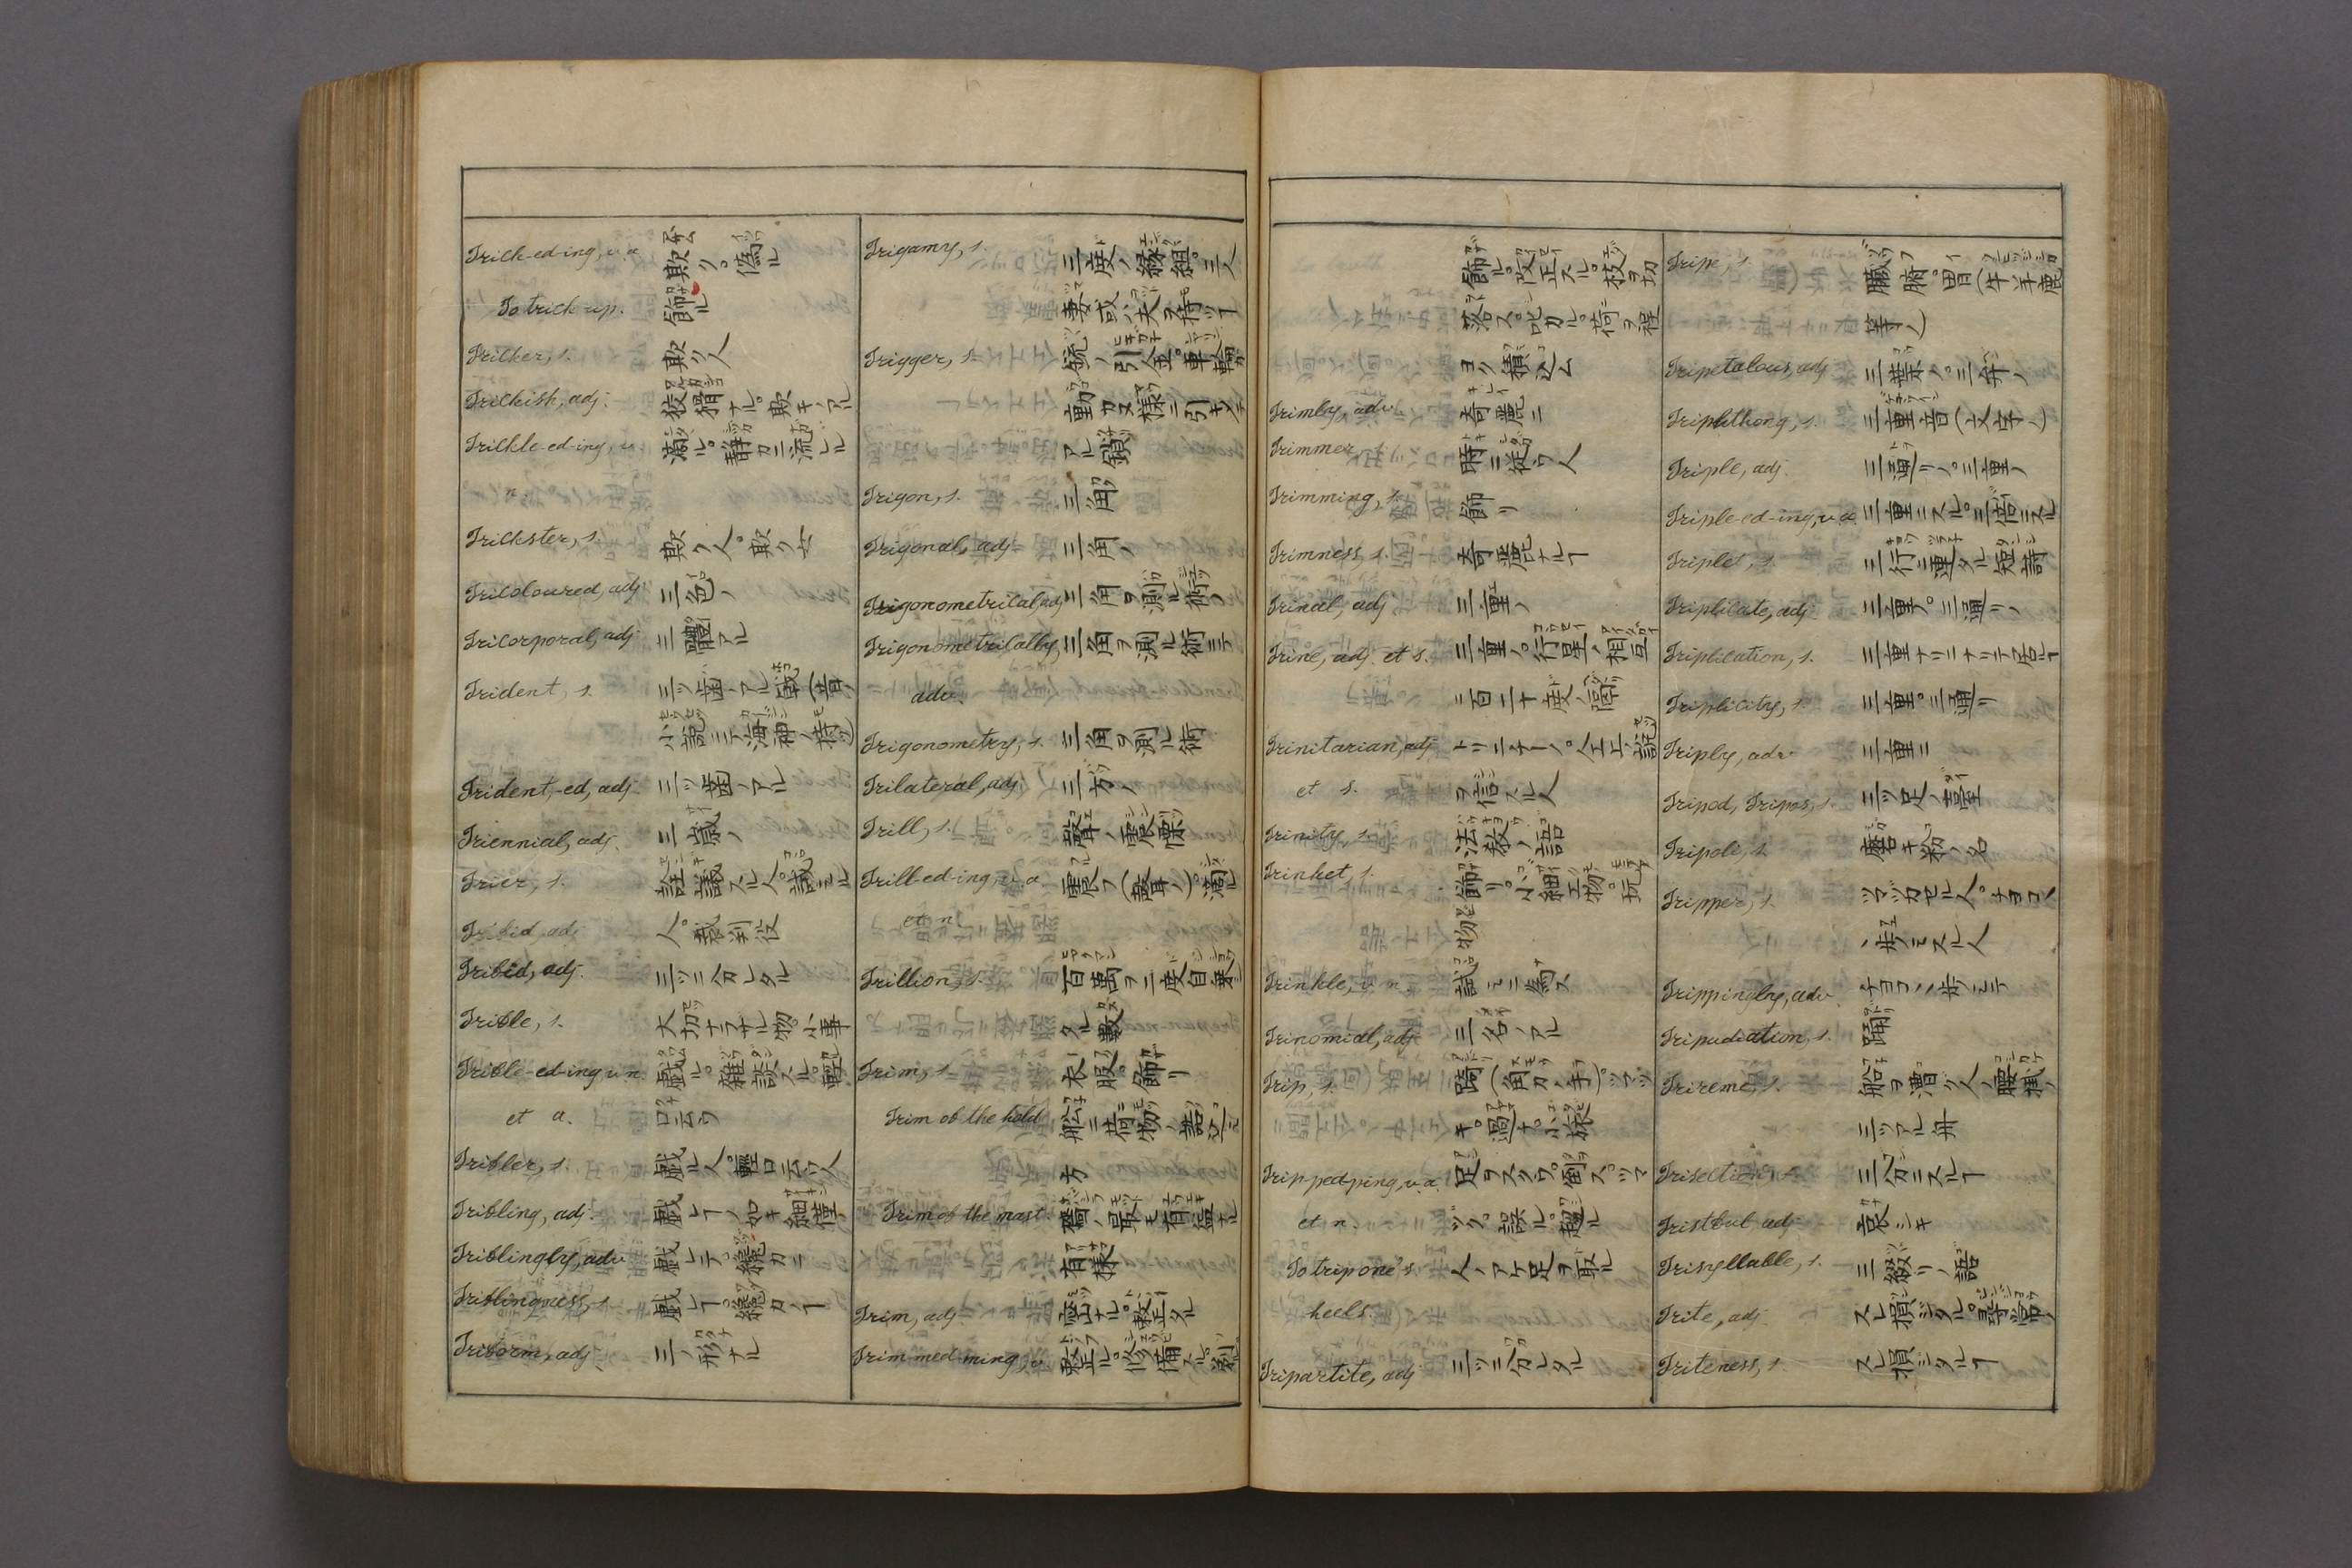 Trick-ed-ing, v. a. 欺ク。偽ル
To trick up. 飾ル
Tricker, s. 欺ク人
Trickish, adj. 狡猾ナル。欺キノアル
Trickle-ed-ing, v. 滴ル。静カニ流ルヽ
n.
Trickster, s. 欺ク人。欺ク女
Tricoloured, adj. 三色ノ
Tricorporal, adj. 三體アル
Trident, s. 三ツ歯ノアル戟(昔ノ
小説ニテ海神ノ持ツ
Trident,-ed, adj. 三ツ歯ノアル
Triennial, adj. 三歳ノ
Trier, s. 詮議スル人。試ミル
人。裁判役
Trifid, adj.
Trifid, adj. 三ツニ分レタル
Trifle, s. 大切ナラザル物。小事
Trifle-ed-ing, v. n. 戯ル。雑談スル。軽
et a. 口云フ
Trifler, s. 戯ル人。軽口云フ人
Trifling, adj. 戯レノ如キ
Triflingly, adv. 戯レテ。纔カニ
Triflingness, s. 戯レヿ。纔カノヿ
Triform, adj. 三ノ形ナル
Trigamy, s. 三度ノ縁組。三人
妻或ハ夫ヲ持ツヿ
Trigger, s. 銃ノ引金。車輪
動カヌ様ニ引キ
アル鎖
Trigon, s. 三角
Trigonal, adj. 三角ノ
Trigonometrical, adj. 三角ヲ測ル術ノ
Trigonometrically, 三角ヲ測ル術ニテ
adv.
Trigonometry, s. 三角ヲ測ル術
Trilateral, adj. 三方ノ
Trill, s. 聲ノ震慄
Trill-ed-ing, v. a. 震フ(聲ノ)。滴ル
et n.
Trillion, s. 百萬ヲ二度自乗シ
タル數
Trim, s. 衣服。飾リ
Trim of the hold 船ニ荷物ノ詰込ミ
方
Trim of the mast. 檣ノ最モ有益ナル
有様
Trim, adj. 密ナル。整正タル
Trim-med-ming, v. 整正ル。修備スル。剃ル
飾ル。改正スル。枝ヲ切
落ス。叱カル。荷ヲ程
ヨク積込ム
Trimly, adv. 奇麗ニ
Trimmer, s. 時ニ従フ人
Trimming, s. 飾リ
Trimness, s. 奇麗ナルヿ
Trinal, adj. 三重ノ
Trine, adj. et s. 三重ノ。行星ノ相互
ニ百二十度ノ隔
Trinitarian, adj. トリニチーノ。仝上ノ説
et s. ヲ信スル人
Trinity, s. 法教ノ語
Trinket, s. 飾リ。小細工物。玩
物
Trinkle, v. n. 試ミニ為ス
Trinomial, adj. 三名ノアル
Trip, s. 踦(角力ノ手)。ツマツ
キ。過チ。小旅
Trip-ped-ping, v. a. 足ヲスクフ。倒ス。ツマ
et n. ツク。誤ル。趨ル
To trip one's 人ノアゲ足ヲ取ル
heels.
Tripartite, adj. 三ツニ分レタル
Tripe, s. 臓腑。胃(牛羊鹿
等ノ)
Tripetalous, adj. 三葉ノ。三弁ノ
Triphthong, s. 三重音(文字ノ)
Triple, adj. 三通リノ。三重ノ
Triple-ed-ing, v. a. 三重ニスル。三倍ニスル
Triplet, s. 三行ニ連タル短詩
Triplicate, adj. 三重ノ。三通リノ
Triplication, s. 三重ナリニナリテ居ルヿ
Triplicity, s. 三重。三通リ
Triply, adv. 三重ニ
Tripod, Tripos, s. 三ツ足ノ臺
Tripoli, s. 磨キ粉ノ名
Tripper, s. ツマツカセル人。チョコ〱
歩ミスル人
Trippingly, adv. チョコ〱歩ミテ
Tripudiation, s. 踊
Trireme, s. 船ヲ漕ク人ノ腰掛ノ
三ツアル舟
Trisection, s. 三分ニスルヿ
Tristful, adj. 哀シキ
Trisyllable, s. 三綴リノ語
Trite, adj. スレ損シタル。尋常ノ
Triteness, s. スレ損シタルヿ